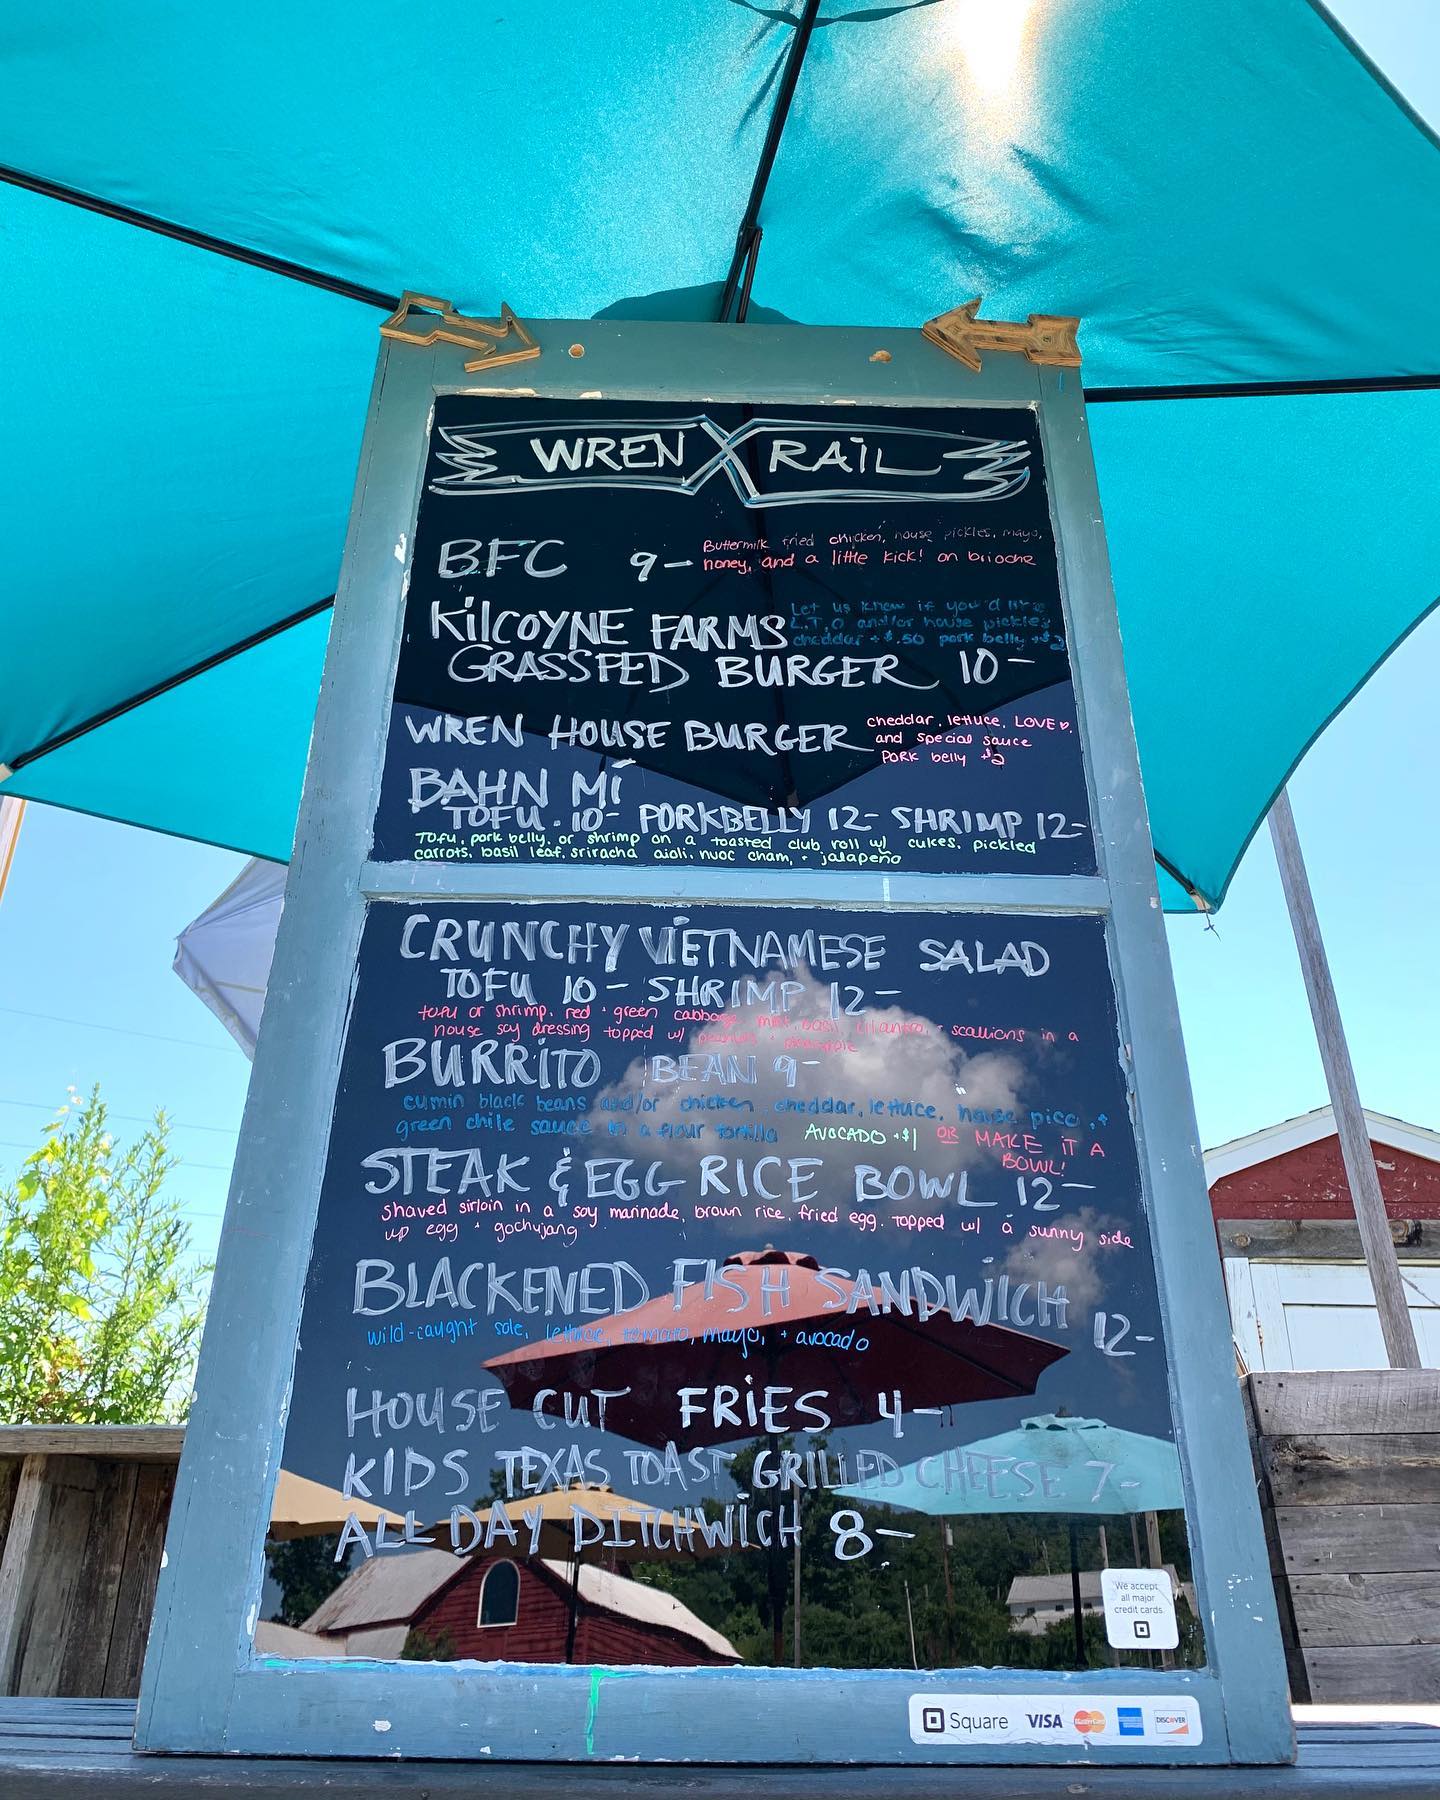 WREN X RAIL
BFC 9-
Buttermilk fried chicken, house pickles, mayo,
honey, and a little kick! on brioche
KILCOYNE FARMS
GRASSFED BURGER 10-
Let us know if you'd like
L,T,O and/or house pickles
cheddar +$.50 pork belly +$2
WREN HOUSE BURGER
cheddar, lettuce, LOVE♡,
and special sauce
PORK belly +$2
BAHN MI
TOFU. 10- PORKBELLY 12- SHRIMP 12-
Tofu, pork belly, or shrimp on a toasted club roll w/ cukes, pickled
carrots, basil leaf, sriracha aioli, nuoc cham, + jalapeño
CRUNCHY VIETNAMESE SALAD
TOFU 10- SHRIMP 12-
tofu or shrimp, red + green cabbage, mint, basil, cilantro, + scallions in a
house soy dressing topped w/ peanuts + pineapple
BURRITO BEAN 9-
cumin black beans and/or chicken, cheddar, lettuce, house pico, +
green chile sauce in a flour tortilla AVOCADO +$1 OR MAKE IT A
BOWL!
STEAK & EGG RICE BOWL 12-
shaved sirloin in a soy marinade, brown rice, fried egg. Topped w/ a sunny side
up egg + gochujang
BLACKENED FISH SANDWICH 12-
wild-caught sole, lettuce, tomato, mayo, + avocado
HOUSE CUT FRIES 4-
KIDS TEXAS TOAST GRILLED CHEESE 7-
ALL DAY DITCHWICH 8-
We accept
all major
credit cards.
Square VISA MasterCard AMERICAN EXPRESS DISCOVER